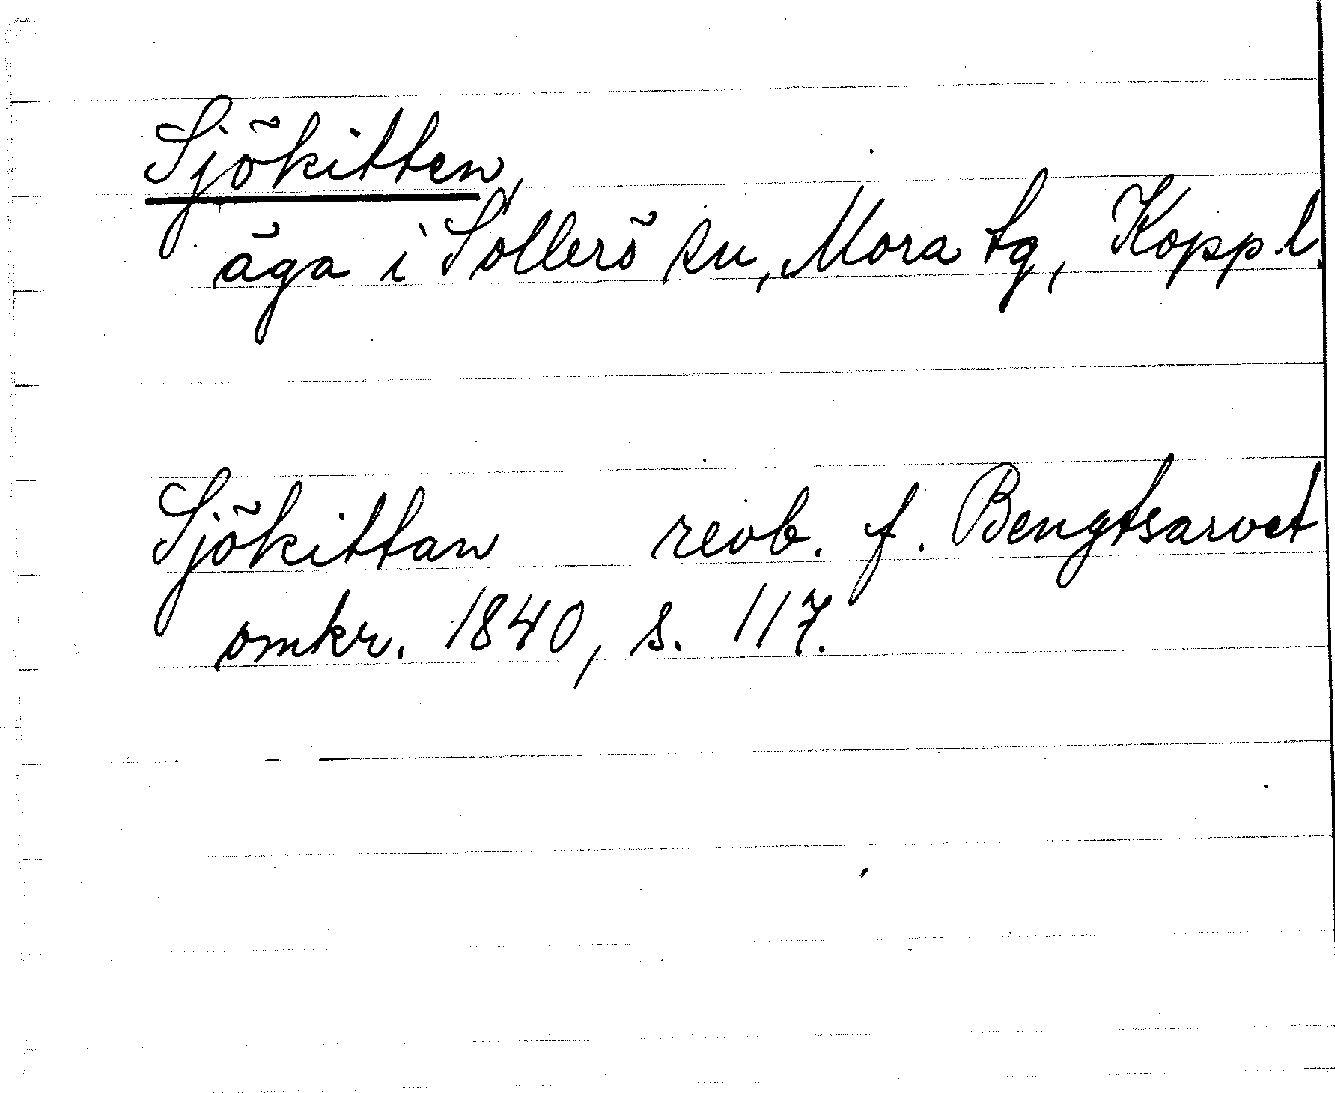 Sjökitten,
äga i Sollerö sn, Mora tg, Kopp.l.
Sjökittan revb. f. Bengtsarvet
omkr. 1840, s. 117.